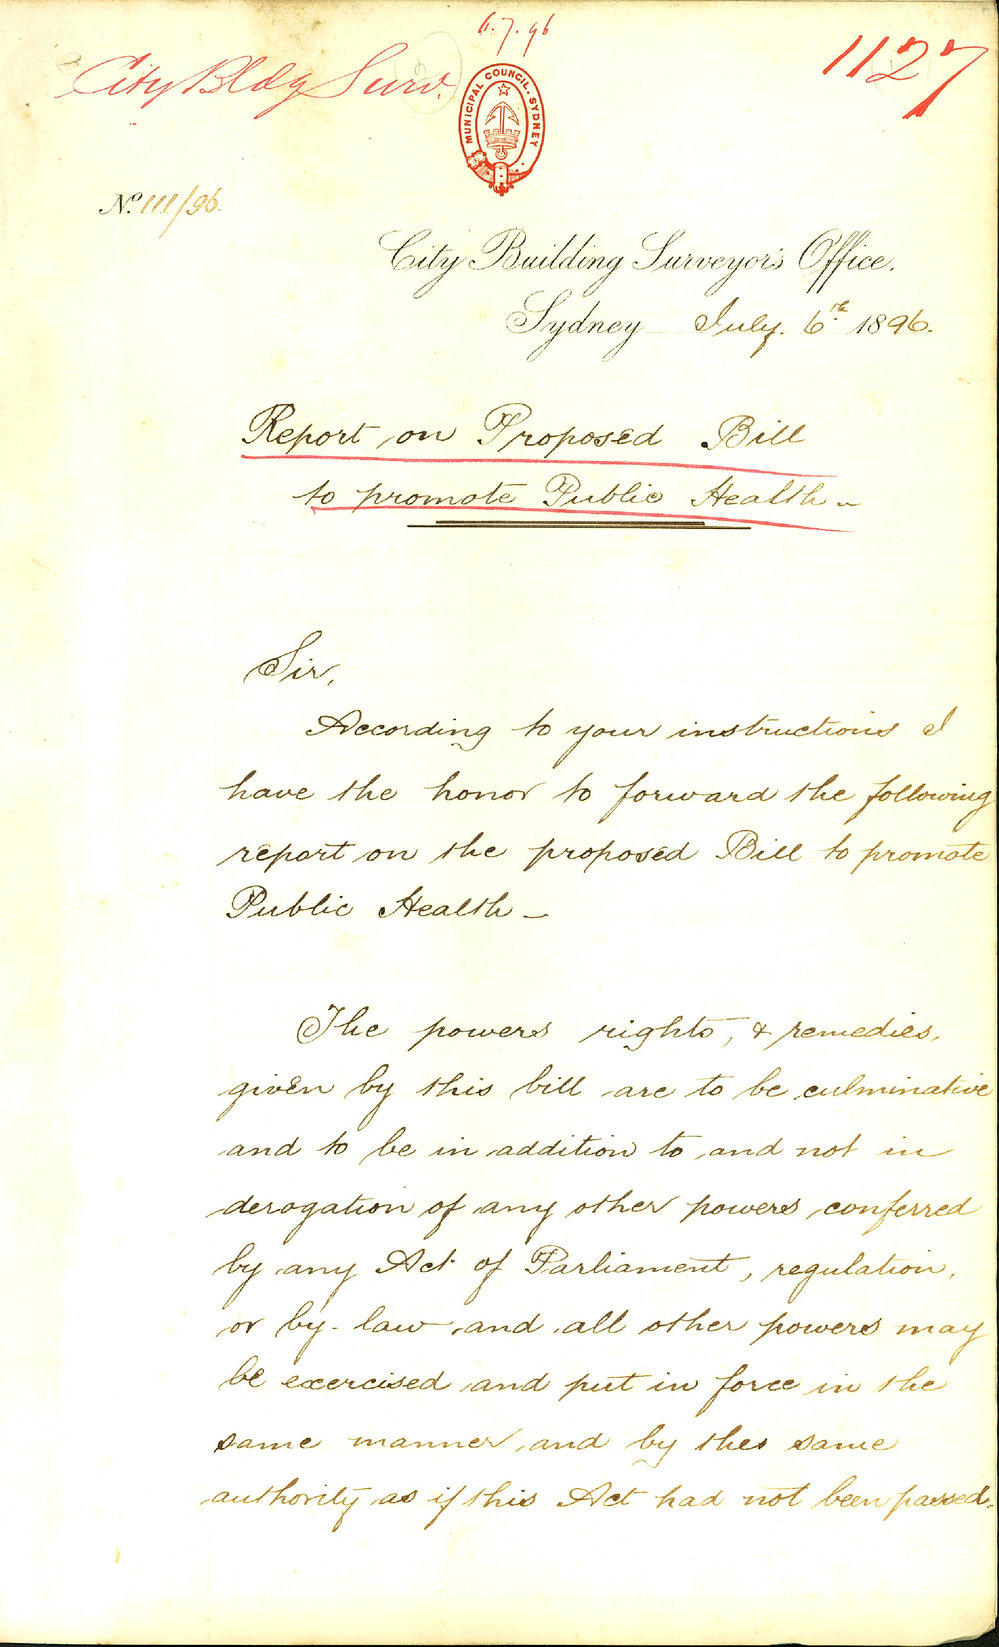 6.7.96
City Bldg Surv.
1127
MUNICIPAL COUNCIL. SYDNEY
No. 111/96.
City Building Surveyor's Office.
Sydney July. 6th 1896.
Report on Proposed Bill
to promote Public Health -
Sir,
According to your instructions I
have the honor to forward the following
report on the proposed Bill to promote
Public Health -
The powers rights, & remedies,
given by this bill are to be culminative
and to be in addition to and not in
derogation of any other powers conferred
by any Act of Parliament, regulation,
or by-law and all other powers may
be exercised and put in force in the
same manner, and by the same
authority as if this Act had not been passed.